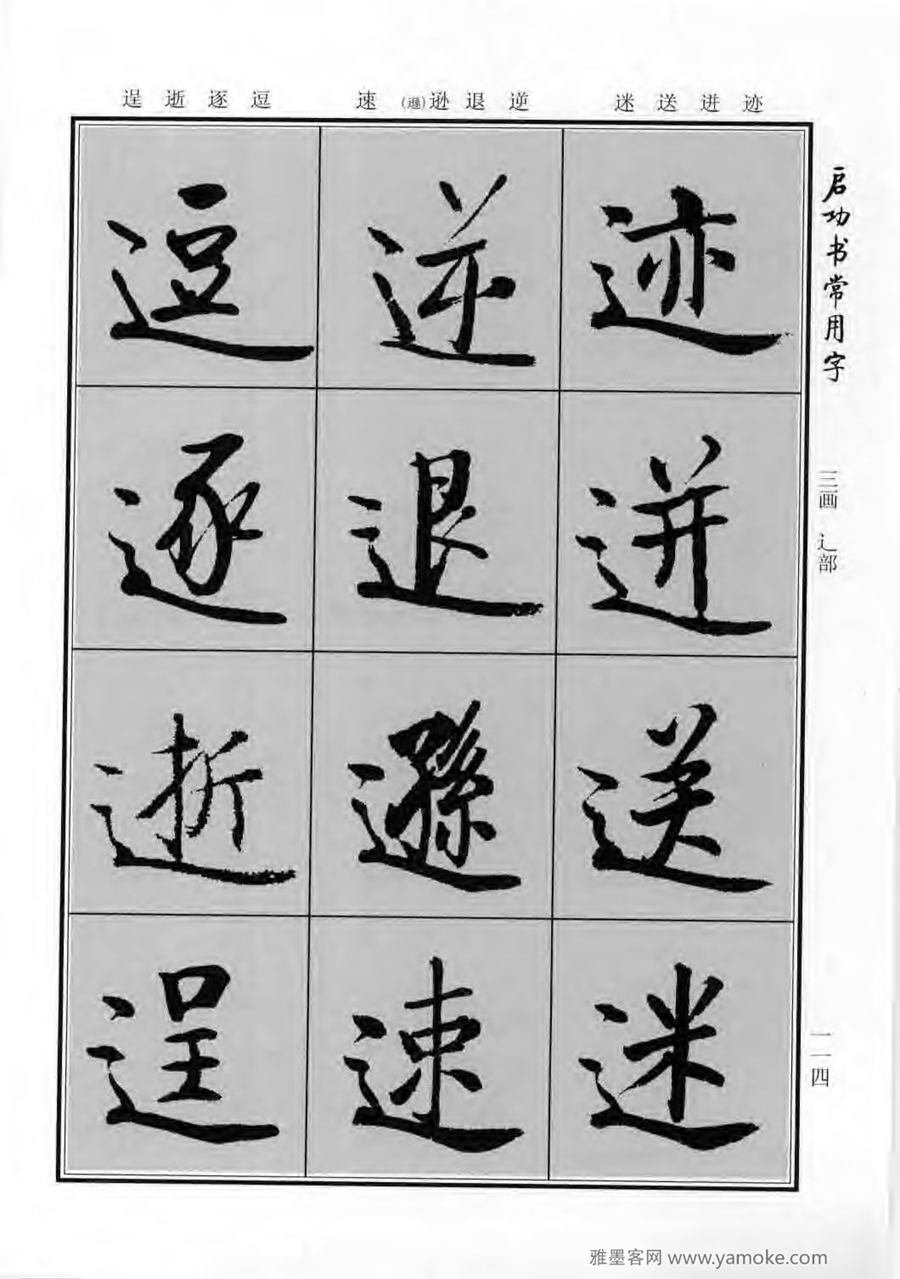 迹迸送迷
逆退逊(遜)速
逗逐逝逞
启功书常用字
三画 辶部
一一四
迹
迸
送
迷
逆
退
遜
速
逗
逐
逝
逞
雅墨客网 www.yamoke.com